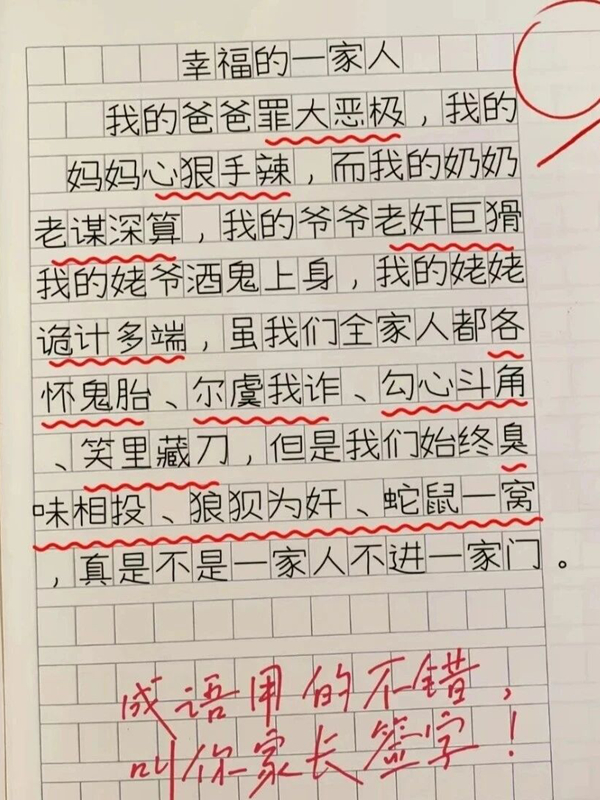 幸福的一家人
我的爸爸罪大恶极，我的
妈妈心狠手辣，而我的奶奶
老谋深算，我的爷爷老奸巨猾
我的姥爷酒鬼上身，我的姥姥
诡计多端，虽我们全家人都各
怀鬼胎、尔虞我诈、勾心斗角
、笑里藏刀，但是我们始终臭
味相投、狼狈为奸、蛇鼠一窝
，真是不是一家人不进一家门。
成语用的不错，
叫你家长签字！